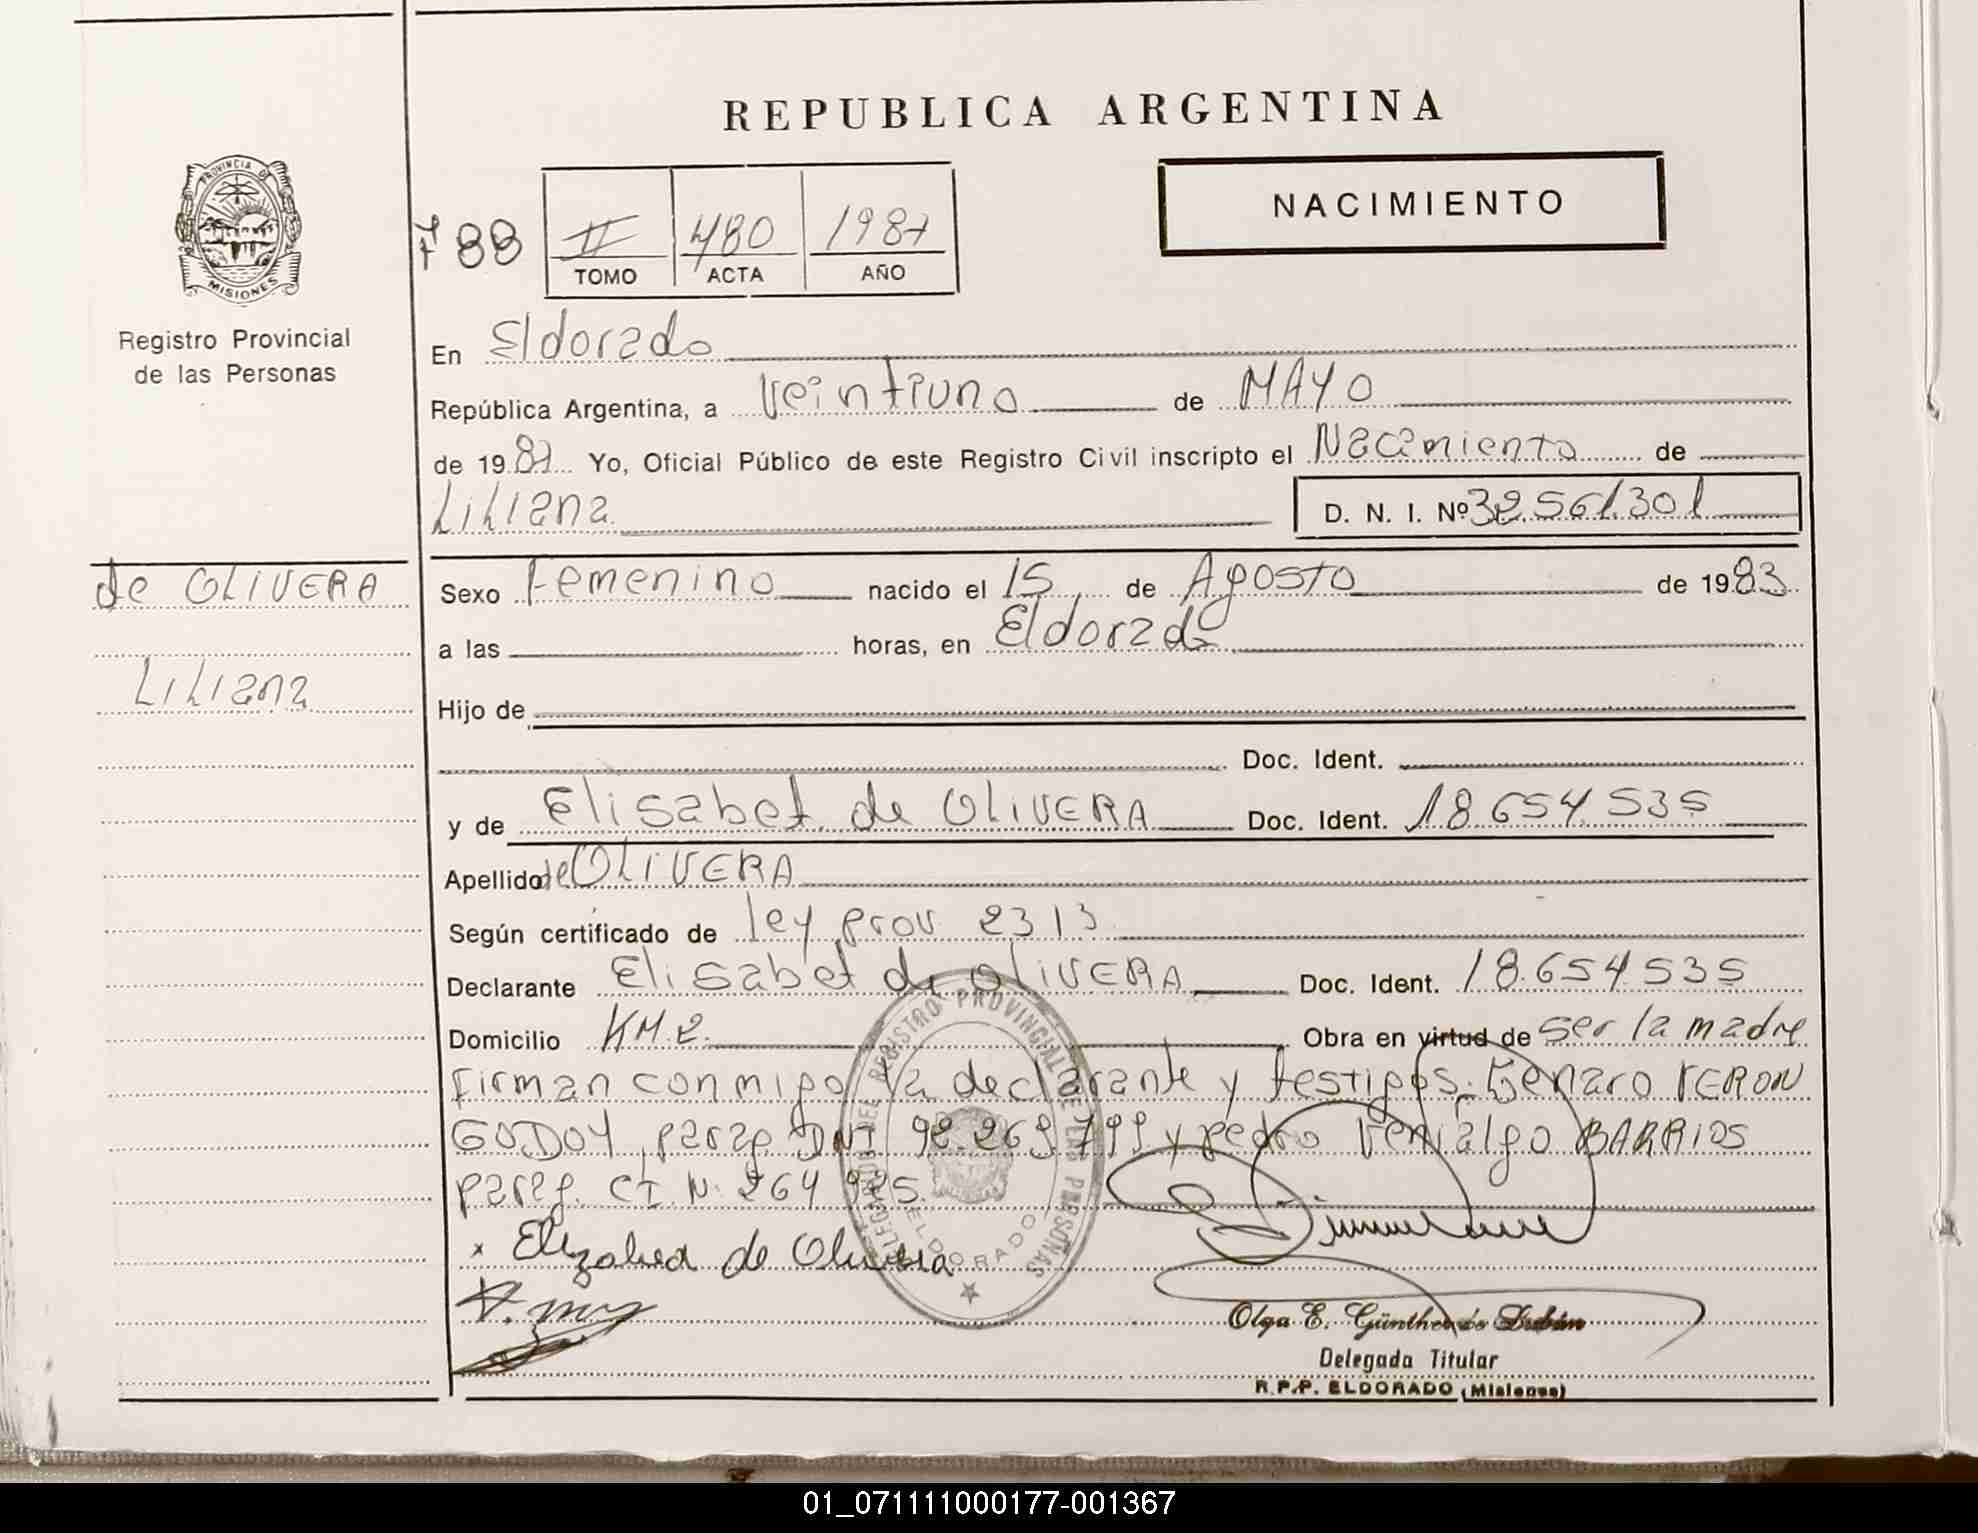 REPUBLICA ARGENTINA
PROVINCIA DE
MISIONES
Registro Provincial
de las Personas
F 88
II 480 1987
TOMO ACTA AÑO
NACIMIENTO
En Eldorado
República Argentina, a Veintiuno de MAYO
de 1987 Yo, Oficial Público de este Registro Civil inscripto el Nacimiento de
LiLiana D. N. I. Nº 32.561.301
de OLIVERA
LiLiana
Sexo Femenino nacido el 15 de Agosto de 1983
a las horas, en Eldorado
Hijo de
Doc. Ident.
y de Elisabet de OLIVERA Doc. Ident. 18.654.535
Apellido de OLIVERA
Según certificado de ley prov 2313
Declarante Elisabet de OLIVERA Doc. Ident. 18.654.535
Domicilio KM.2. Obra en virtud de ser la madre
Firman conmigo la declarante y testigos: Genaro VERON
GODOY, parag. DNI 92.269.799 y pedro Venialgo BARRIOS
parag. CI. N. 264.925.
x Elizabed de Olivera
DELEGACION DEL REGISTRO PROVINCIAL DE LAS PERSONAS
ELDORADO
Olga E. Günther de
Delegada Titular
R.P.P. ELDORADO (Misiones)
01_071111000177-001367